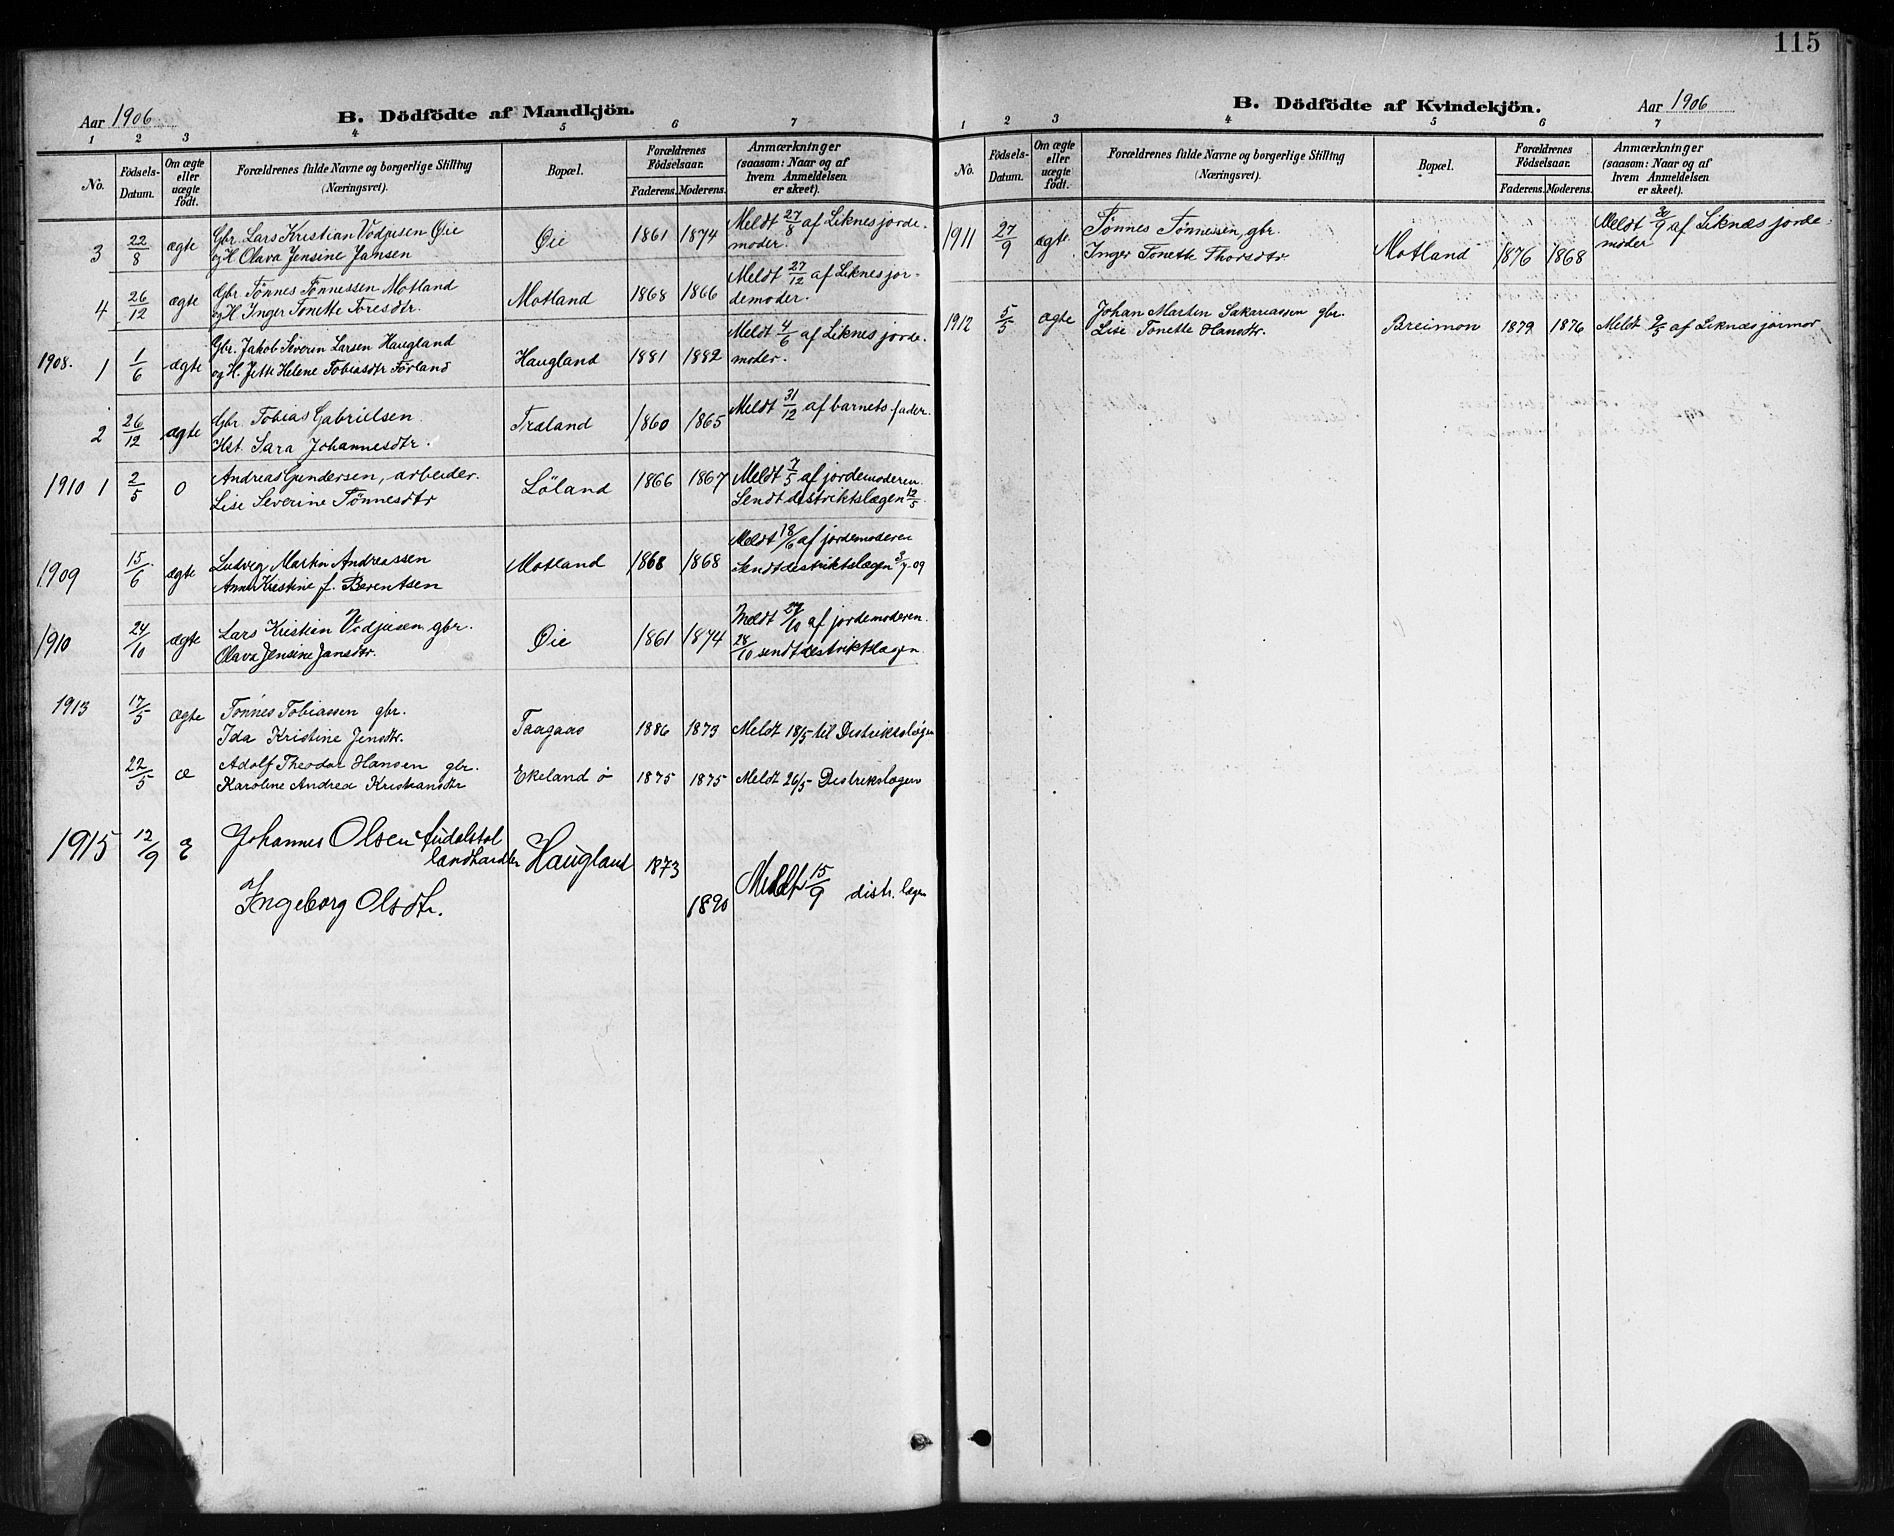 115
Aar 1906
B. Dödfödte af Mandkjön.
1 2 3 4 5 6 7
No.
Födsels-Datum.
Om ægte eller uægte födt.
Forældrenes fulde Navne og borgerlige Stilling (Næringsvei).
Bopæl.
Forældrenes Födselsaar.
Faderens. Moderens.
Anmærkninger (saasom: Naar og af hvem Anmeldelsen er skeet).
3 22/8 ægte Gbr. Lars Kristian Vodjusen Øie Øie 1861 1874 Meldt 27/8 af Liknes jorde-
og H. Olava Jensine Jansen moder.
4 26/12 ægte Gbr. Tønnes Tønnessen Motland Motland 1868 1866 Meldt 27/12 af Liknes jor-
og H. Inger Tonette Toresdtr. demoder.
1908. 1 1/6 ægte Gbr. Jakob Severin Larsen Haugland Haugland 1881 1882 Meldt 4/6 af Liknes jorde-
og H. Jette Helene Tobiasdtr Förland moder.
2 26/12 ægte Gbr. Tobias Gabrielsen Træland 1860 1865 Meldt 31/12 af barnets fader.
Hst. Sara Johannesdtr.
1910 1 2/5 0 Andreas Gundersen, arbeider. Löland 1866 1867 Meldt 7/5 af jordemoderen.
Lise Severine Tönnesdtr Sendt destriktslægen 12/5.
1909 15/6 ægte Ludvig Martin Andreassen Motland 1868 1868 Meldt 18/6 af jordemoderen
Anna Kristine f. Berentsen Sendt destriktslægen 3/7-09
1910 24/10 ægte Lars Kristian Vodjusen gbr. Øie 1861 1874 Meldt 27/10 af jordemoderen.
Olava Jensine Jansdtr. 28/10 sendt destriktslægen.
1913 17/5 ægte Tønnes Tobiassen gbr. Taagaas 1886 1873 Meldt 18/5 til Distriktslægen
Ida Kristine Jensdtr.
22/5 æ Adolf Theodor Hansen gbr. Ekeland ö 1875 1875 Meldt 26/5 Distrikslægen
Karoline Andrea Kristiansdtr
1915 12/9 E Johannes Olsen Audalstol Haugland 1873 Meldt 15/9 distr. lægen
landhandler
Ingeborg Olsdtr. 1890
Aar 1906
B. Dödfödte af Kvindekjön.
1 2 3 4 5 6 7
No.
Födsels-Datum.
Om ægte eller uægte födt.
Forældrenes fulde Navne og borgerlige Stilling (Næringsvei).
Bopæl.
Forældrenes Födselsaar.
Faderens. Moderens.
Anmærkninger (saasom: Naar og af hvem Anmeldelsen er skeet).
1911 27/9 ægte. Tønnes Tønnessen, gbr. Motland 1876 1868 Meldt 30/9 af Liknæs jorde-
Inger Tonette Thorsdtr moder
1912 5/5 ægte Johan Martin Sakariassen gbr. Breimon 1879 1876 Meldt 9/5 af Liknæs jormor
Lise Tonette Hansdtr.